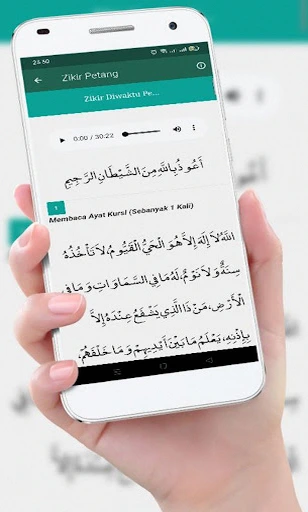 23.50
Zikir Petang
Zikir Diwaktu Pe...
0:00 / 30:22
أَعُوذُ بِاللَّهِ مِنَ الشَّيْطَانِ الرَّجِيمِ
1
Membaca Ayat Kursi (Sebanyak 1 Kali)
اللَّهُ لاَ إِلَهَ إِلاَّ هُوَ الْحَيُّ الْقَيُّومُ، لاَ تَأْخُذُهُ
سِنَةٌ وَلاَ نَوْمٌ، لَهُ مَا فِي السَّمَاوَاتِ وَمَا فِي
الْأَرْضِ، مَنْ ذَا الَّذِي يَشْفَعُ عِنْدَهُ إِلاَّ
بِإِذْنِهِ، يَعْلَمُ مَا بَيْنَ أَيْدِيهِمْ وَمَا خَلْفَهُمْ،